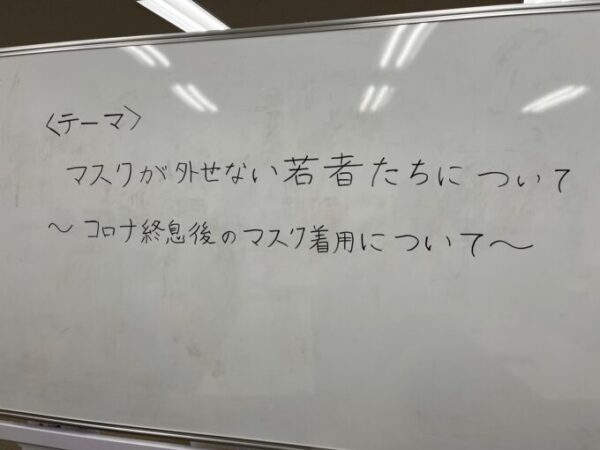 〈テーマ〉
マスクが外せない若者たちについて
～コロナ終息後のマスク着用について～